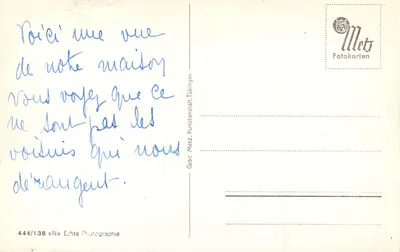 Voici une vue
de notre maison
vous voyez que ce
ne sont pas les
voisins qui nous
dérangent.
444/138 eNe Echte Photographie
Gebr. Metz, Kunstanstalt, Tübingen
Metz
Fotokarten